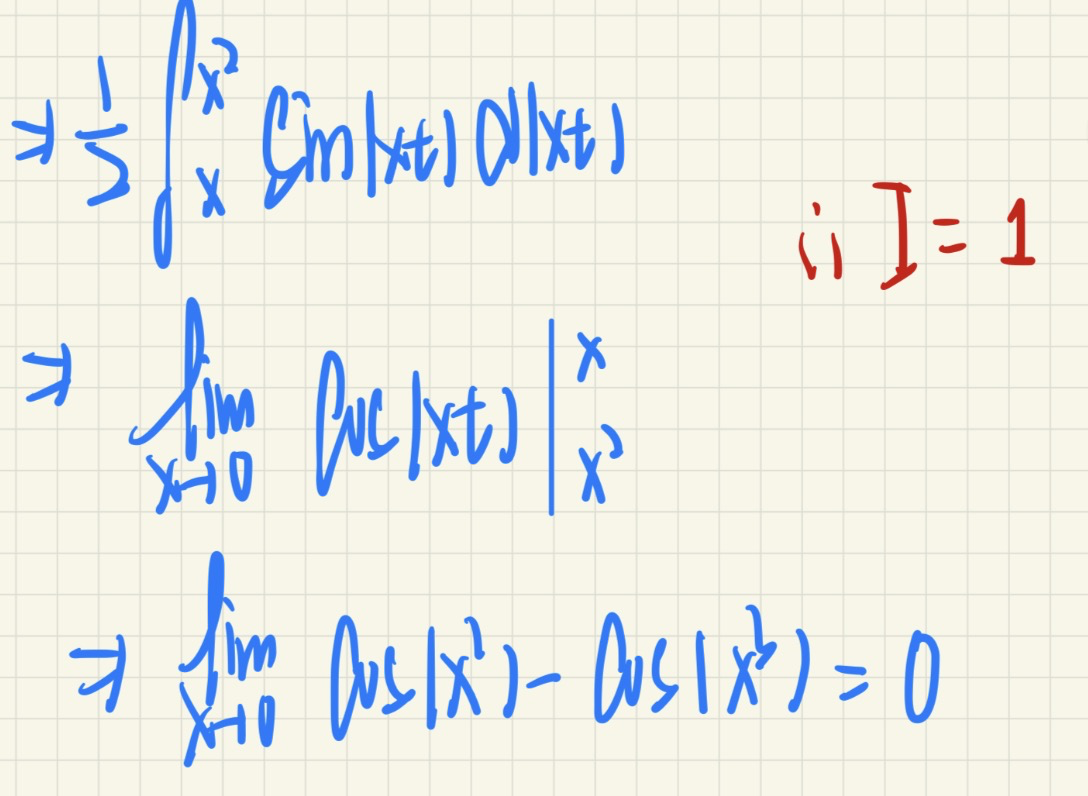 ⇒ 1/2 ∫_x^{x²} Sin(xt) d(xt)
ii] = 1
⇒ lim x→0 Cos(xt) | x x²
⇒ lim x→0 Cos(x²) - Cos(x³) = 0